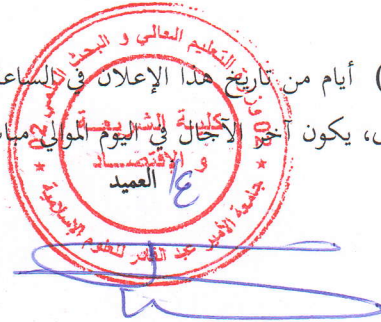 ) أيام من تاريخ هذا الإعلان في الساعة
، يكون آخر الآجال في اليوم الموالي
العميد
وزارة التعليم العالي و البحث العلمي
كلية الشريعة
و الاقتصاد
جامعة الأمير عبد القادر للعلوم الإسلامية
02